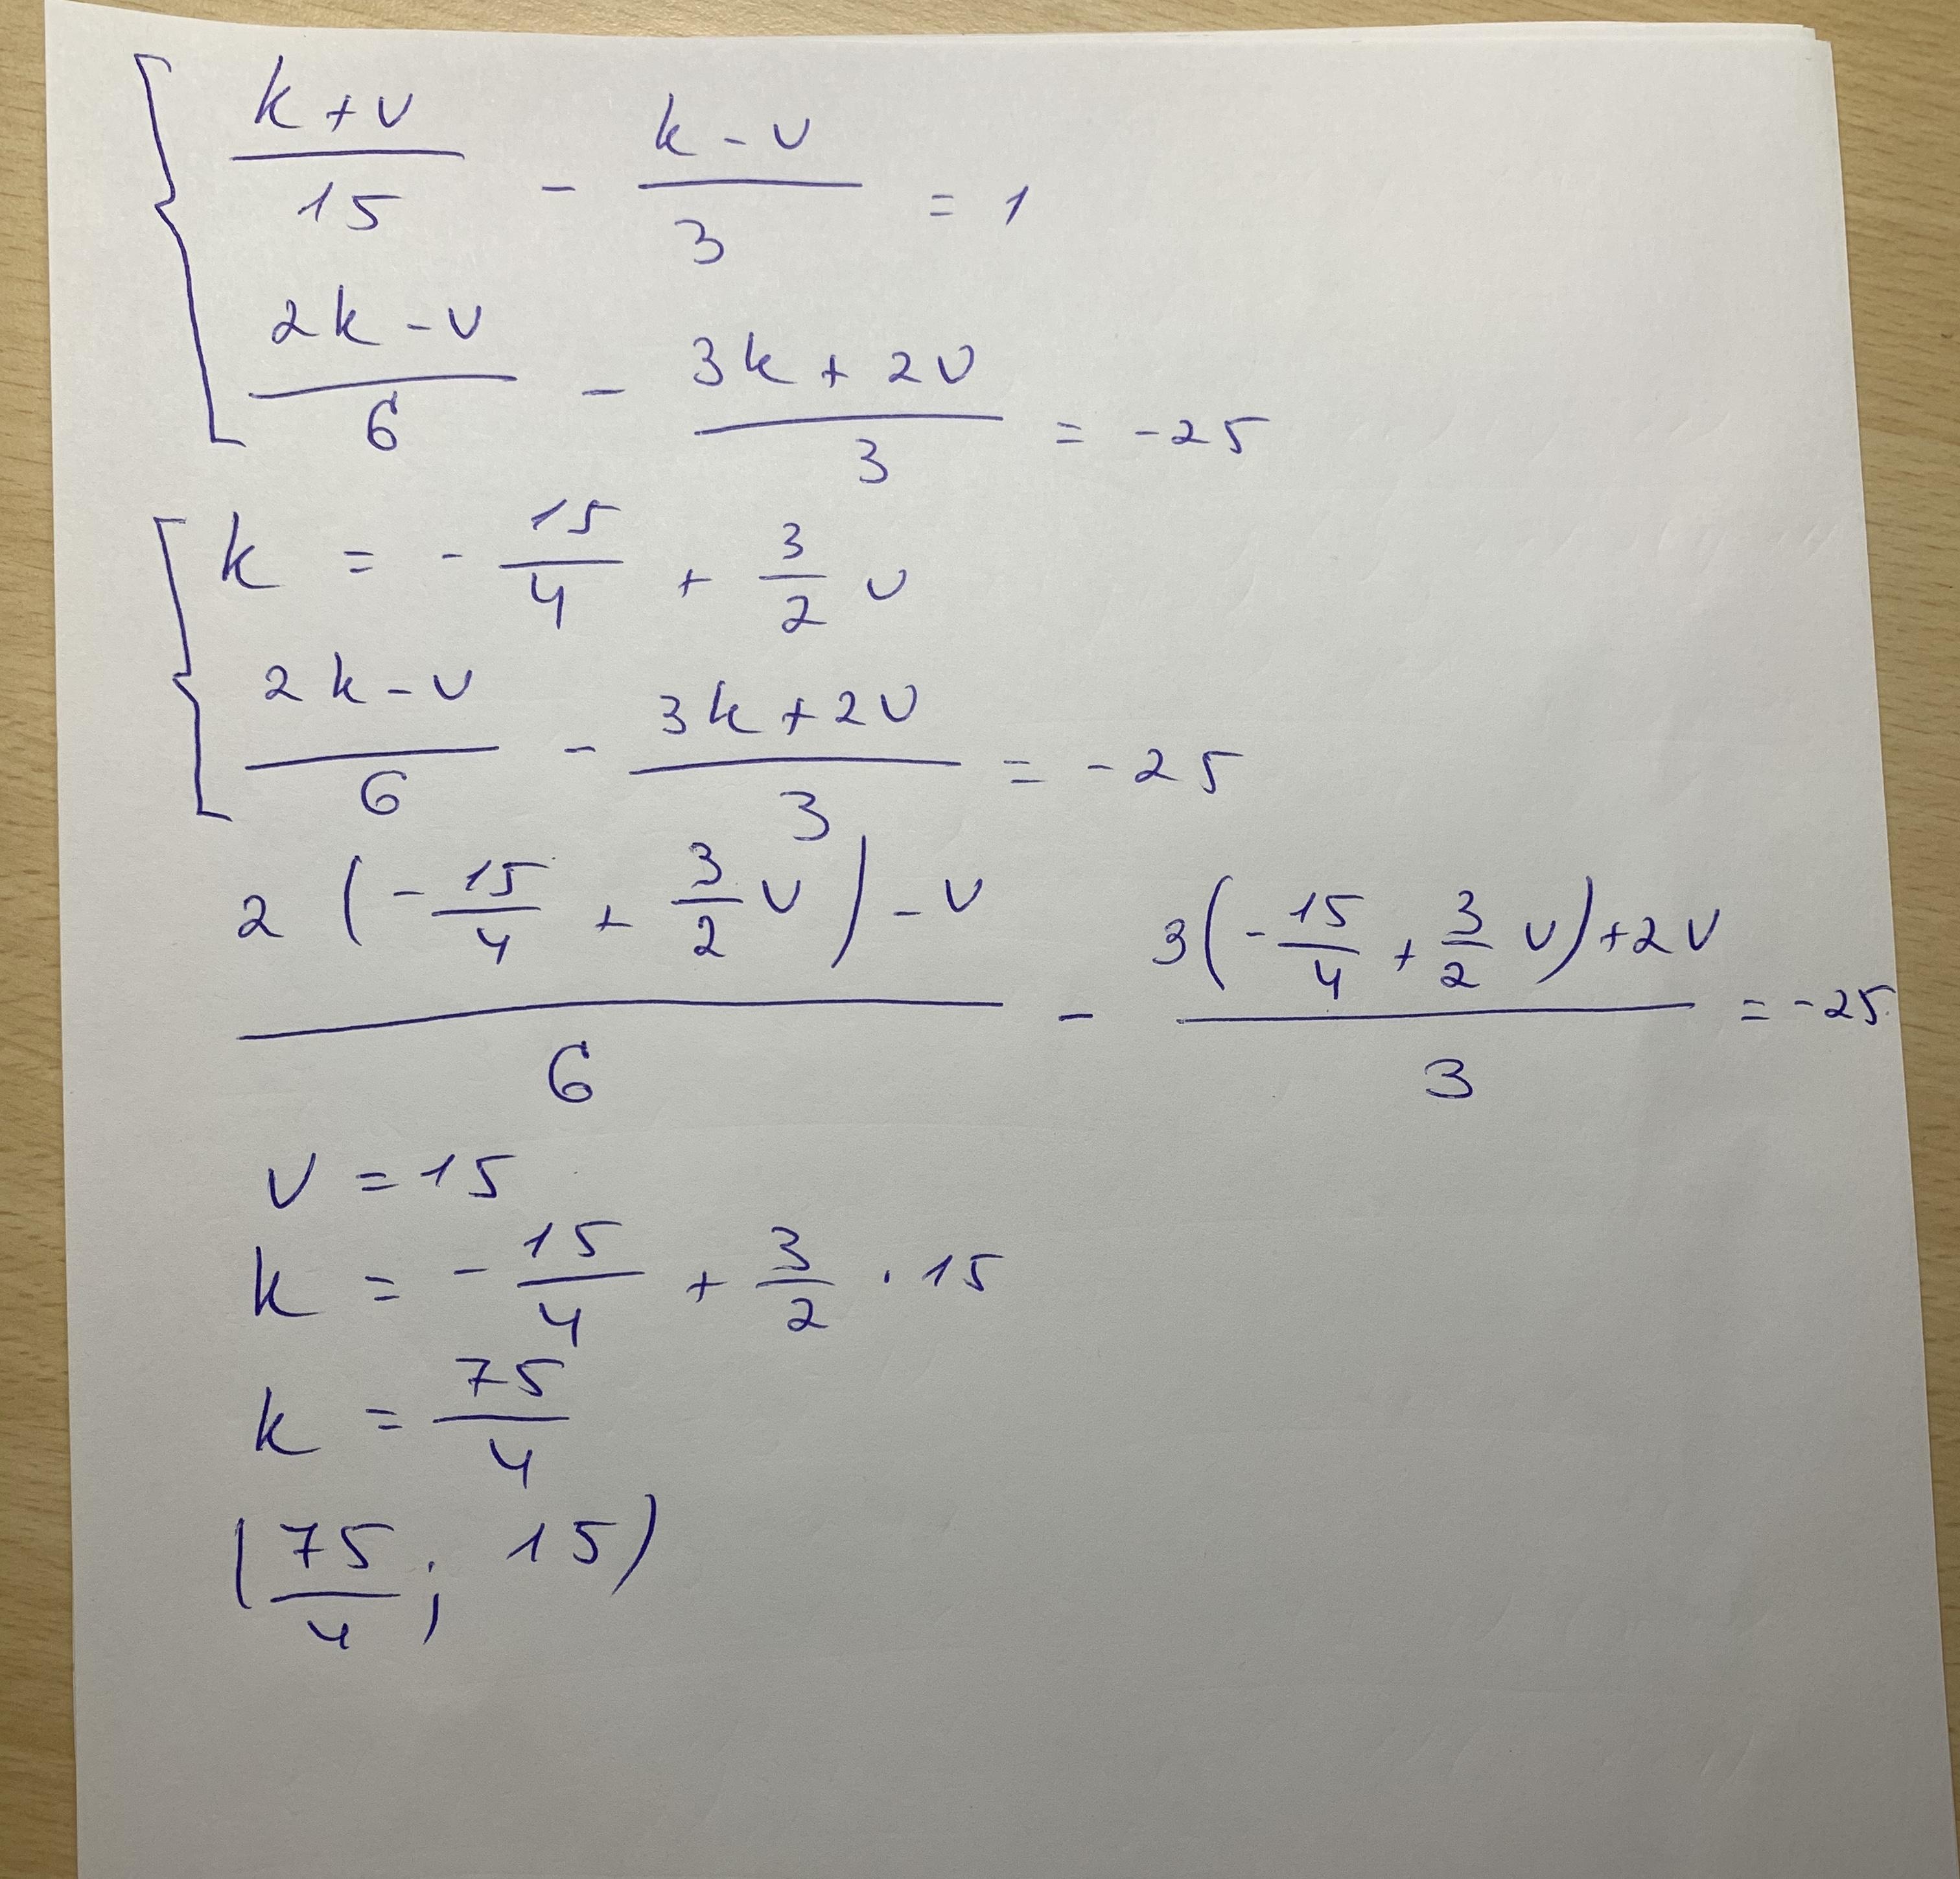 { (k+v)/15 - (k-v)/3 = 1
(2k-v)/6 - (3k+2v)/3 = -25
{ k = - 15/4 + 3/2 v
(2k-v)/6 - (3k+2v)/3 = -25
(2(-15/4 + 3/2 v)-v)/6 - (3(-15/4 + 3/2 v)+2v)/3 = -25
v = 15
k = - 15/4 + 3/2 · 15
k = 75/4
(75/4; 15)